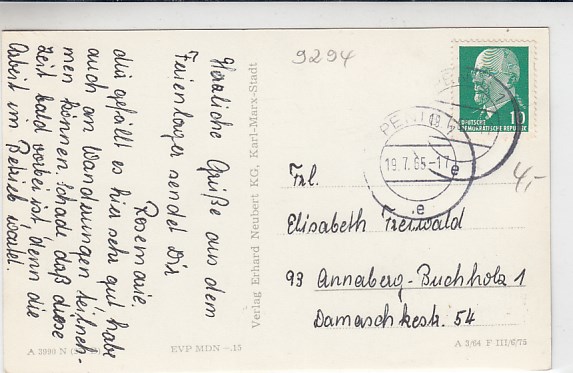 Herzliche Grüße aus dem
Ferienlager sendet Dir
Rosemarie.
die gefällt es hier sehr gut habe
auch an Wandrungen teilneh-
men können. Schade daß diese
Zeit bald vorbei ist, denn die
Arbeit im Betrieb wartet.
Verlag Erhard Neubert KG, Karl-Marx-Stadt
9294
DEUTSCHE
DEMOKRATISCHE REPUBLIK
10
19.7.65-17
e
4,-
Frl.
Elisabeth Freiwald
93 Annaberg-Buchholz 1
Damaschkestr. 54
A 3990 N
EVP MDN -.15
A 3/64 F III/6/75